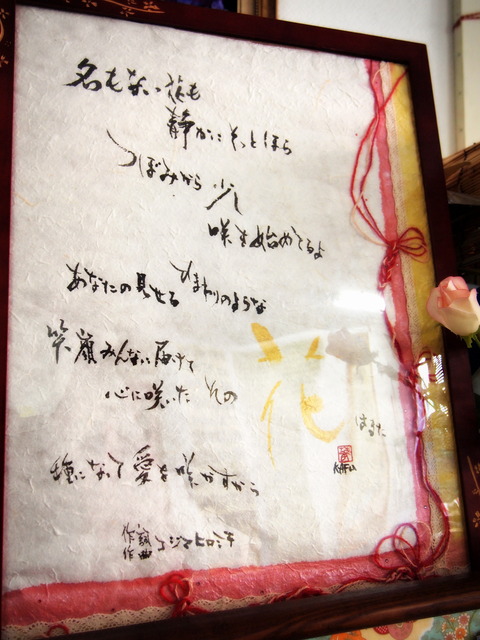 名もない花も
静かにそっとほら
つぼみから少し
咲き始めてるよ
あなたの見せる ひまわりのような
笑顔みんなに届けて
心に咲いた その
花
はるた
種になって愛を咲かすから
KAFU
作詞
作曲 コジマヒロミチ